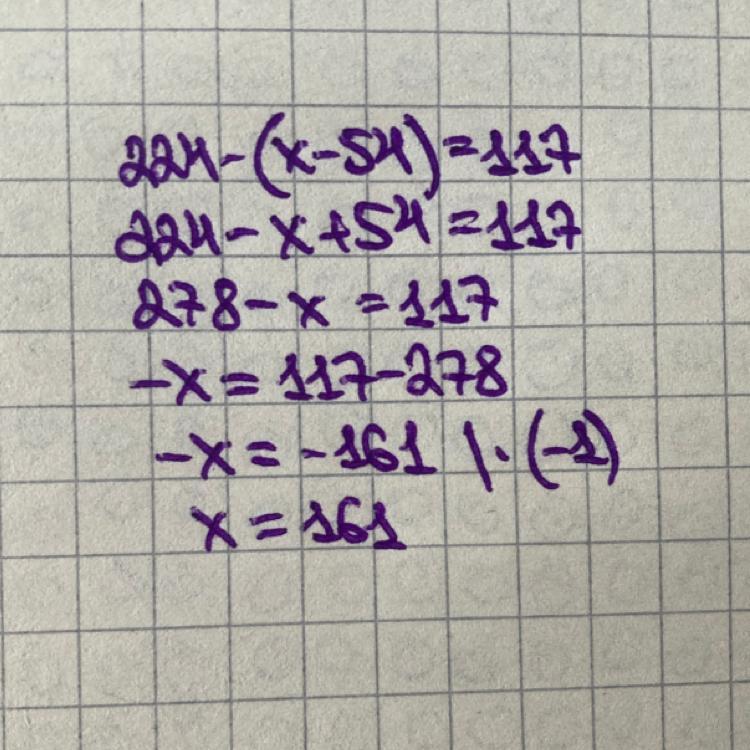 224-(x-54)=117
224-x+54=117
278-x=117
-x=117-278
-x=-161 |·(-1)
x=161